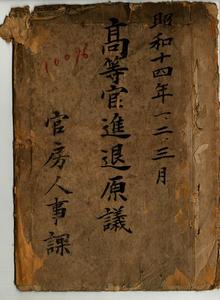 昭和十四年一、二、三月
高等官進退原議
官房人事課
10096